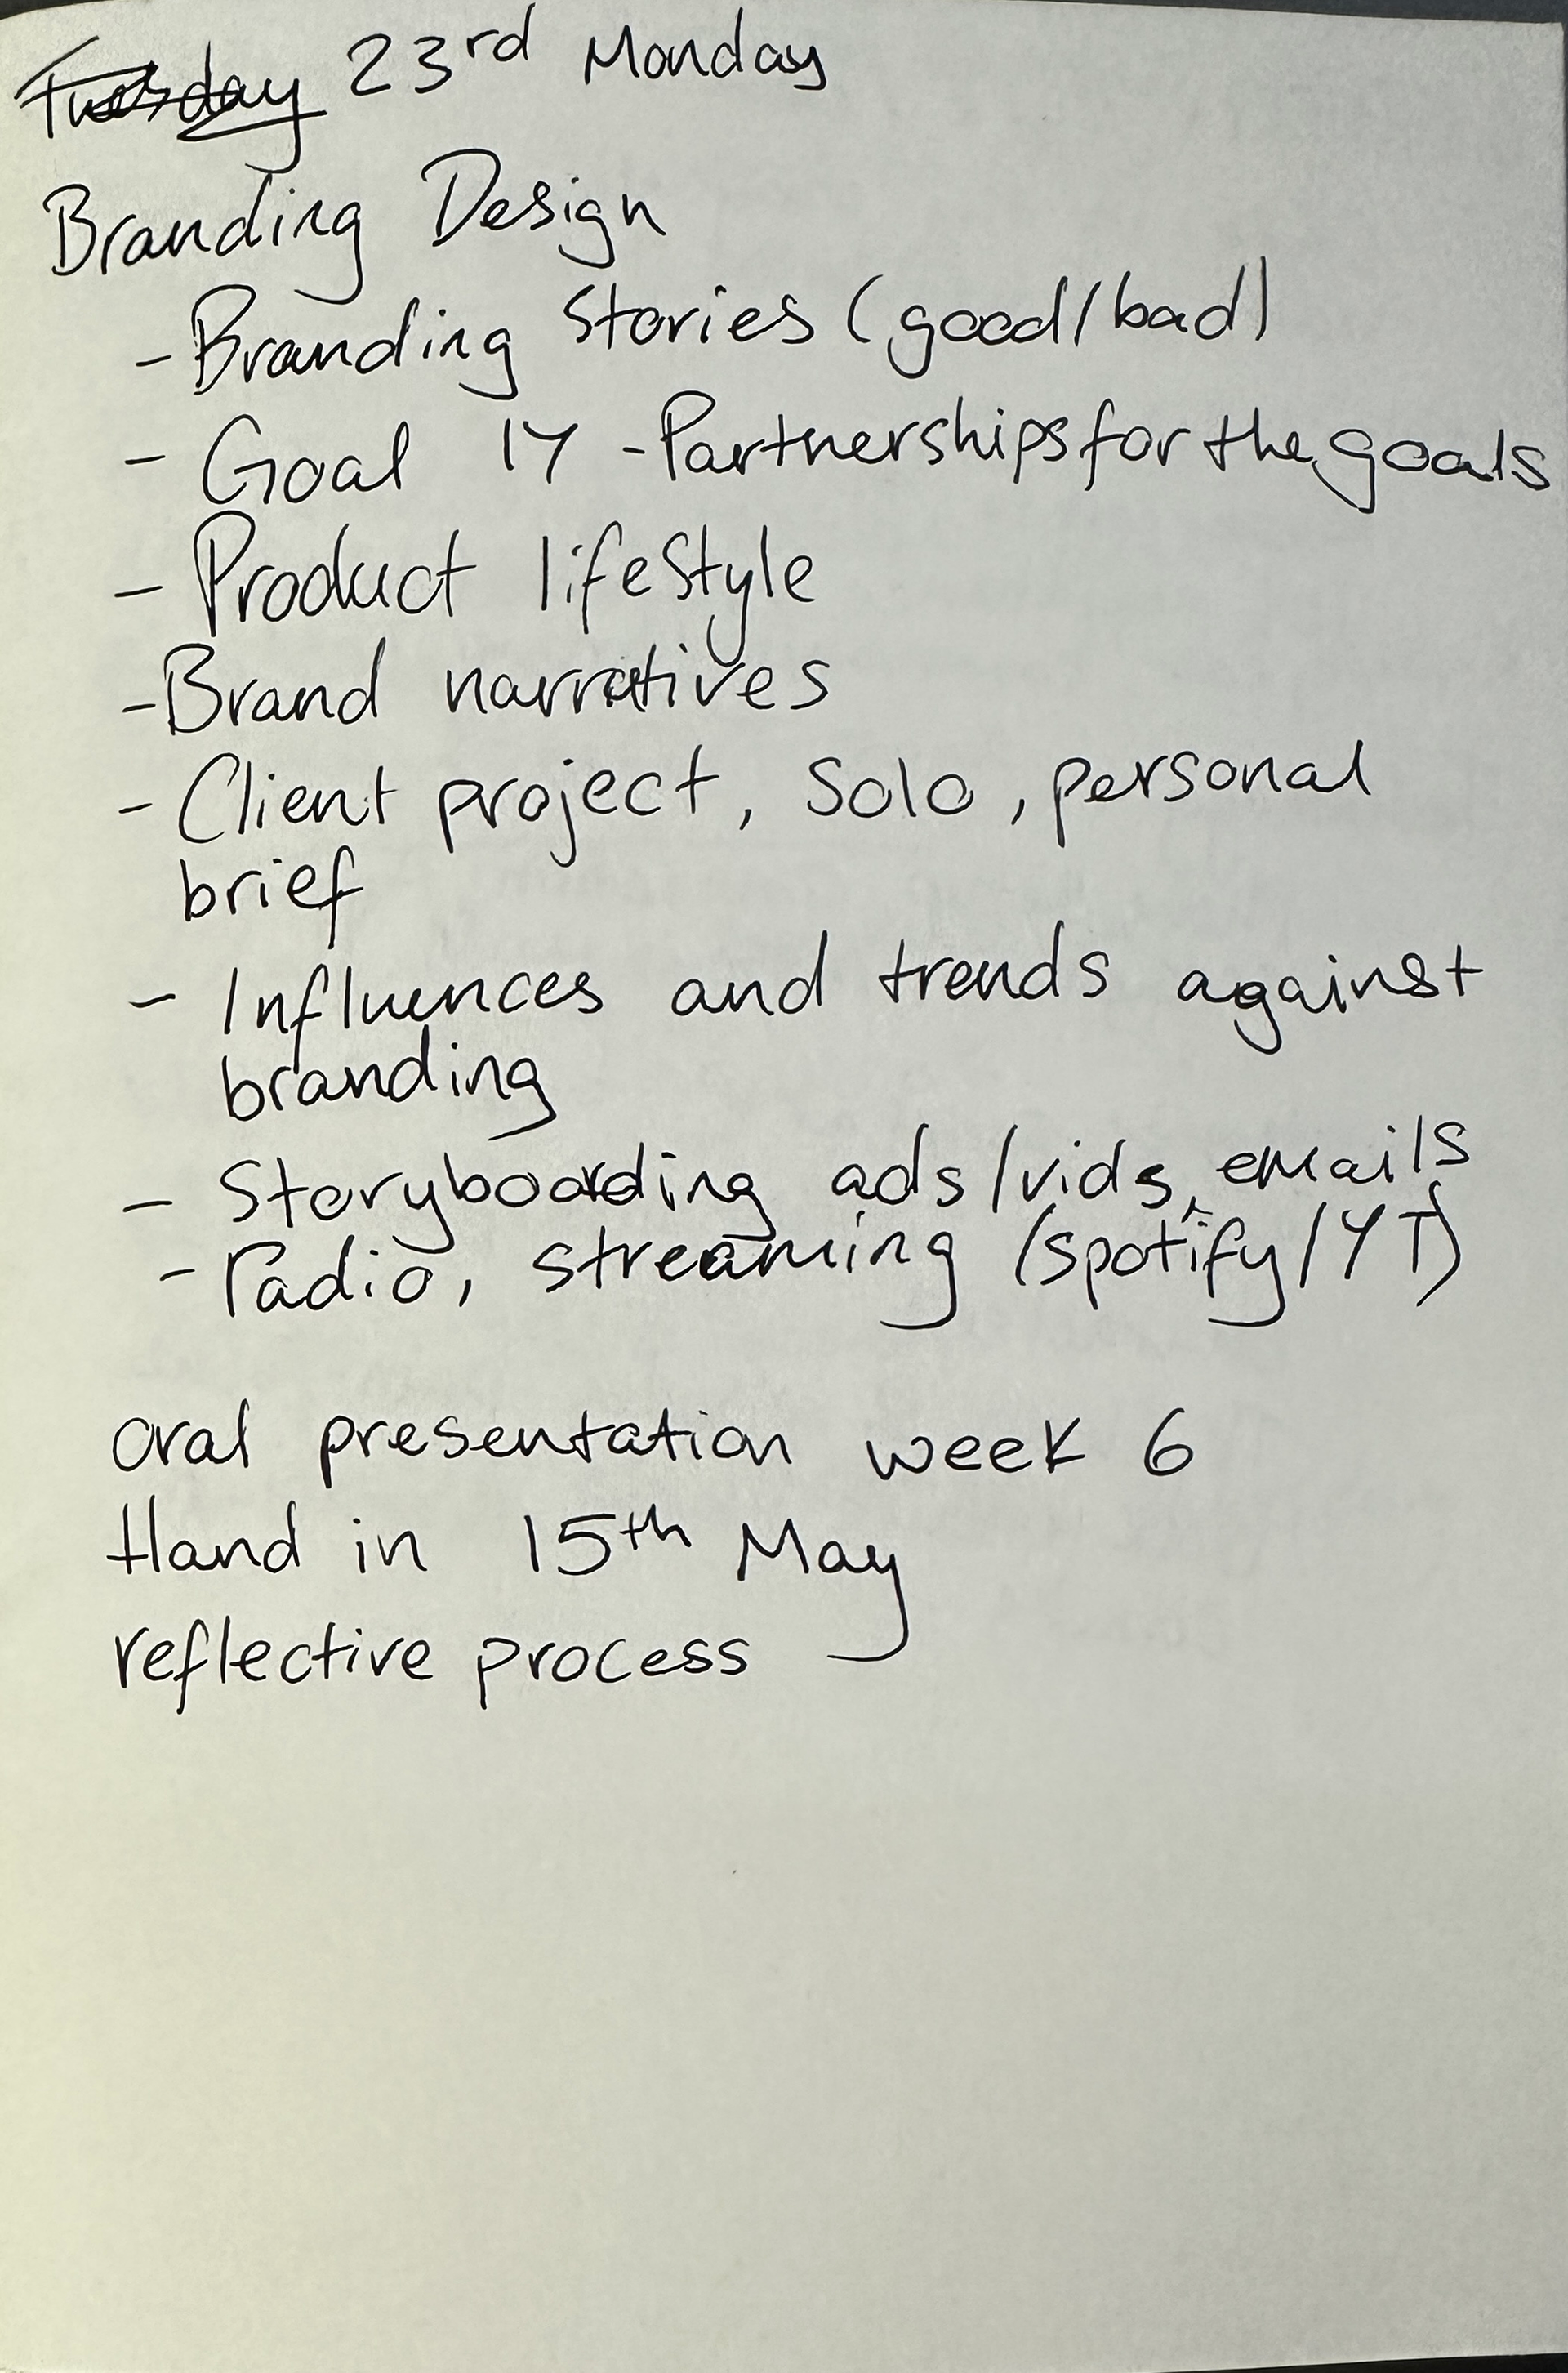 Tuesday 23rd Monday
Branding Design
- Branding stories (good/bad)
- Goal 17 - Partnerships for the goals
- Product lifestyle
- Brand narratives
- Client project, Solo, personal
brief
- Influences and trends against
branding
- Storyboarding ads/vids, emails
- radio, streaming (spotify/YT)
oral presentation week 6
Hand in 15th May
reflective process